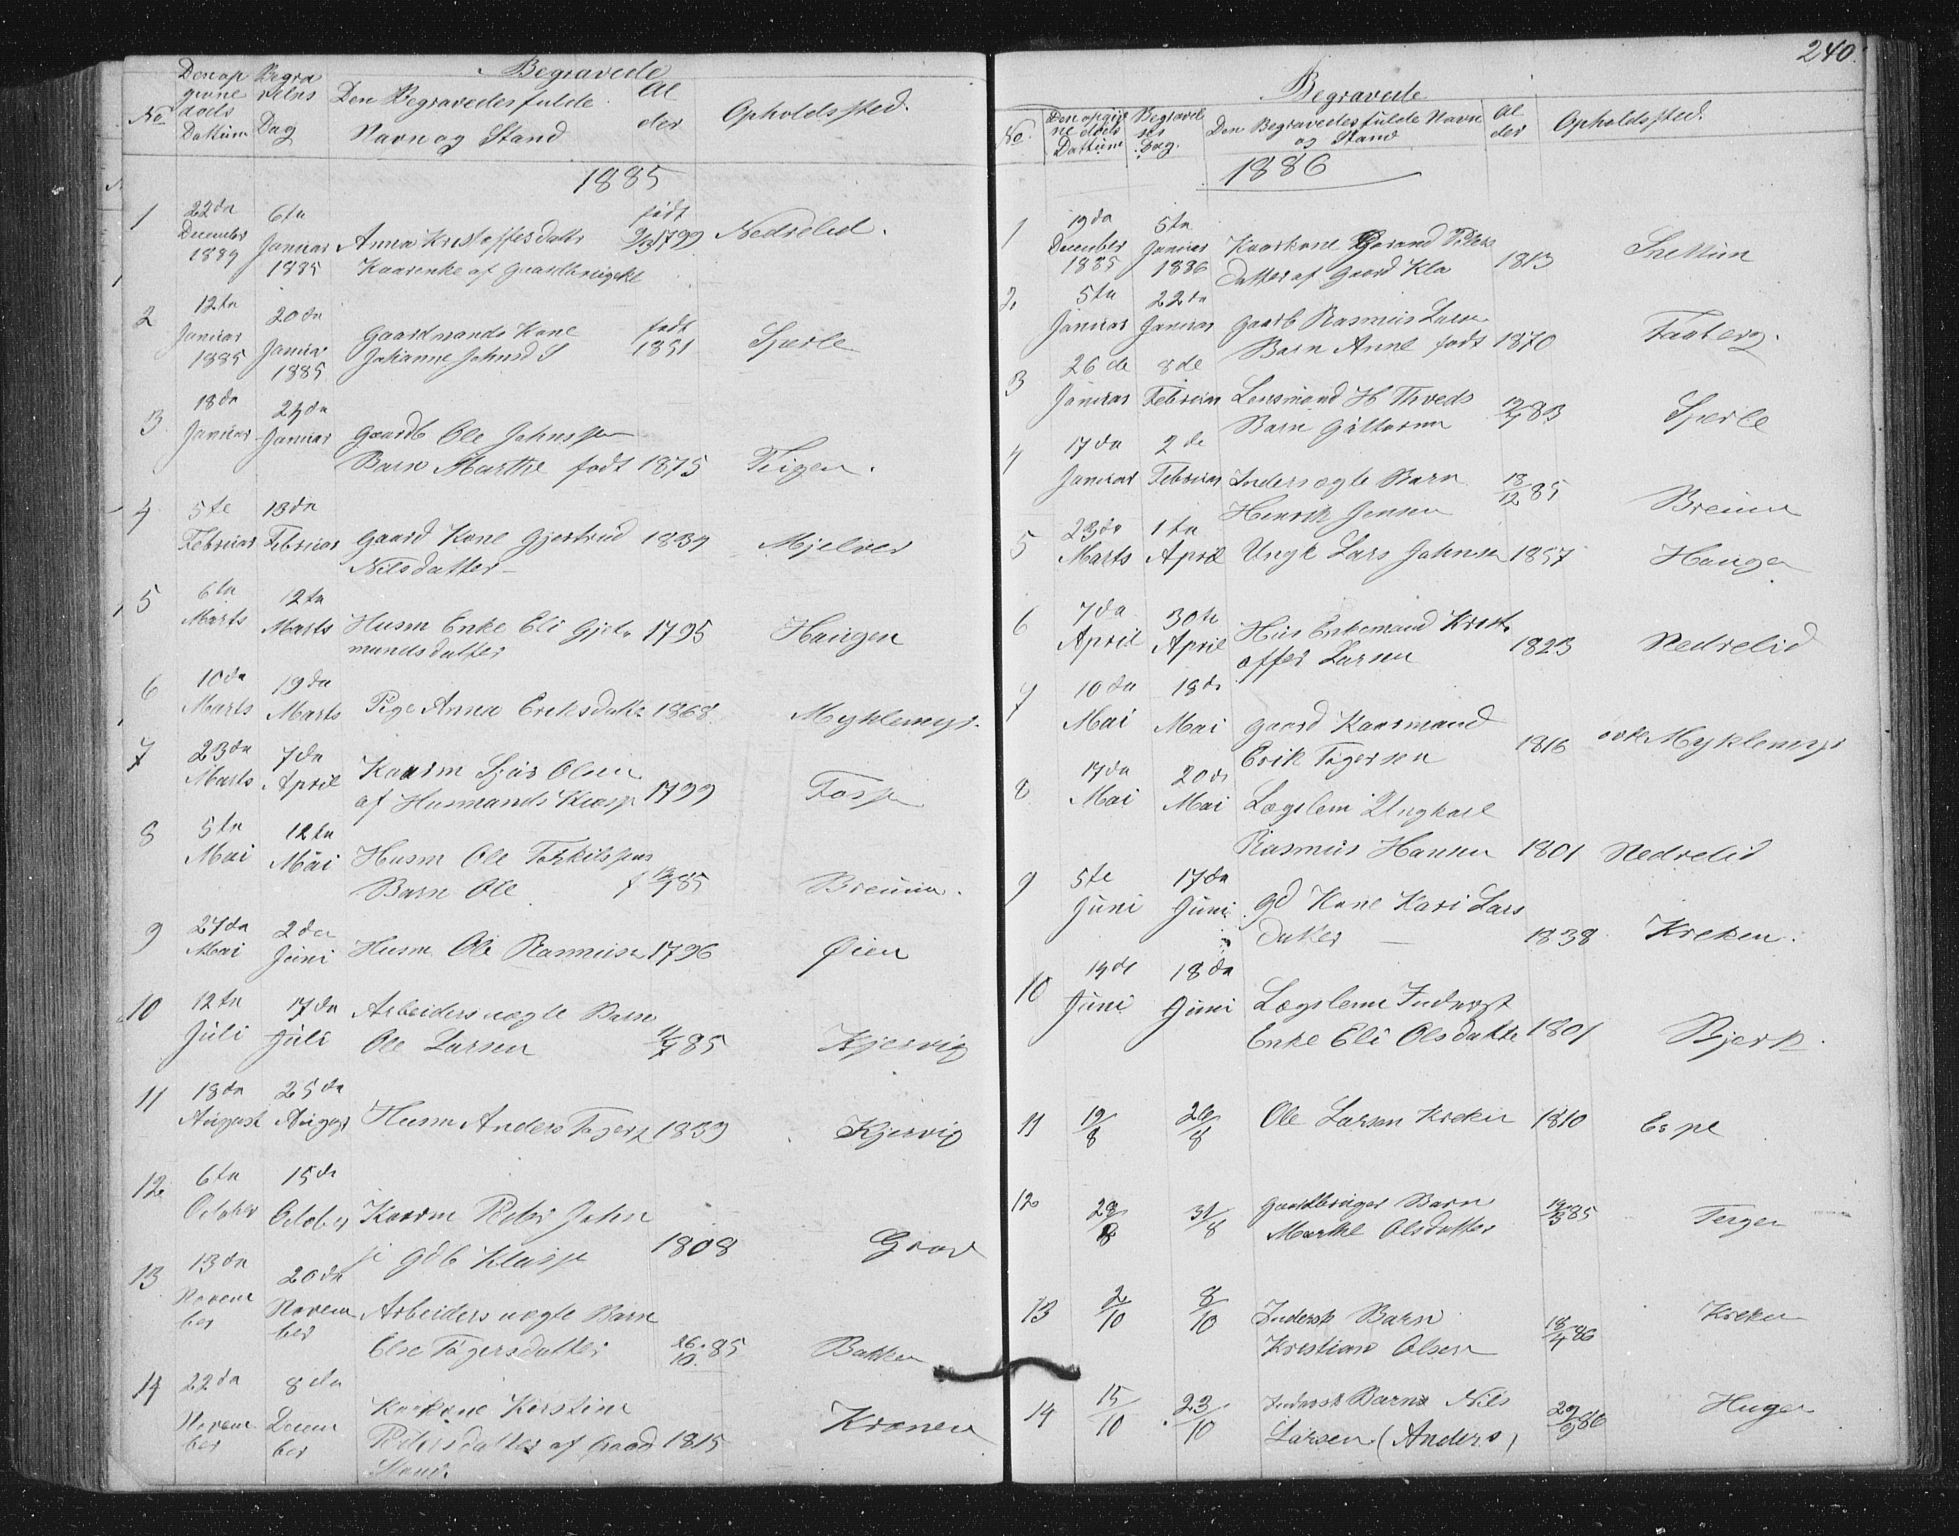 Begravede
No
Den op
givne
døds
Dattum
Begra
velses
Dag
Den Begravedes fulde
Navn og Stand
Al
der
Opholdssted.
1885
1 22de 6te født
December Januar Anna Kristoffersdatter 1799 Nedrelid.
1884 1885 Kaarenke af
2 12te 20de
Januar Januar Gaardmands Kone født Sperle
1885 1885 Johanne Johns D 1851
3 18de 24de
Januar Januar Gaardb Ole Johnssen
Barn Marthe født 1875 Teigen.
4 5te 13de
Februar Februar Gaard Kone Gjertrud 1834 Mjelver
Nilsdatter
5 6te 12te
Marts Marts Husm Enke Eli Gjer 1795 Haugen
mundsdatter
6 10de 19de
Marts Marts Pige Anna Eriksdatter 1868 Myklemyr.
7 23de 7de
Marts April Kaarm Sjur Olsen
af Husmands Klasse 1799 Fosse
8 5te 12te
Mai Mai Husm Ole Torkilssens
Barn Ole f 85 Breum.
9 27de 2den
Mai Juni Husm Ole Rasmusen 1796 Øien
10 12te 17de Arbeiders uægte Barn
Juli Juli Ole Larsen 85 Kjervig
11 18de 25de
August August Husm Anders Tøgers 1839 Kjervig
12 6te 15de
October October Kaarm Peder John
Gdb Klasse 1808 Grov
13 13de 20de
Novem Novem Arbeiders uægte Barn
ber ber Else Tøgersdatter 26/10 85 Bakken
14 22de 8de
Novem Decem Kaarkone Kirstine
ber ber Pedersdatter af Gaard 1815 Kronen
Stand
240.
Begravede
No.
Den opgiv
ne døds
Dattum
Begravel
ses
Dag.
Den Begravedes fulde Navn
og Stand
Al
der
Opholdssted.
1886
1 19de 5te
December Januar Kaarkone Gorand Peders
1885 1886 Datter af Gaard Kla 1813 Snettun
2 5te 22de
Januar Januar Gaardb Rasmus Larsen
Barn Anne født 1870 Faaberg.
3 26de 8de
Januar Februar Lensmand H Tveds 83 Sperle
Barn Guttorm
4 17de 2de
Januar Februar Inders uægte Barn 18/12 85 Breum
Henrik Jensen
5 23de 1te
Marts April Ungk Lars Johnsen 1857 Haugen
6 7de 30te
April April Hus Enkemand Krist
offer Larsen 1823 Nedrelid
7 10de 18de
Mai Mai Gaard Kaarmand
Erik Tøgersen 1816 øvre Myklemyr
8 17de 20de
Mai Mai Lægslem Ungkarl
Rasmus Hansen 1801 Nedrelid
9 5te 17de
Juni Juni gd Kone Kari Lars
datter 1838 Kreken.
10 14de 18de
Juni Juni Lægslem Inderst
Enke Eli Olsdatter 1801 Bjerk.
11 19/8 26/8 Ole Larsen Kreken 1810 Espe
12 29/8 31/8 Gaardbruger Barn 85 Teigen
Marthe Olsdatter
13 2/10 8/10 Inderst Barn 18/4 86 Kreken
Kristian Olsen
14 15/10 23/10 Inderst Barn Nils 29/9 86 Hugen
Larsen (Anders)